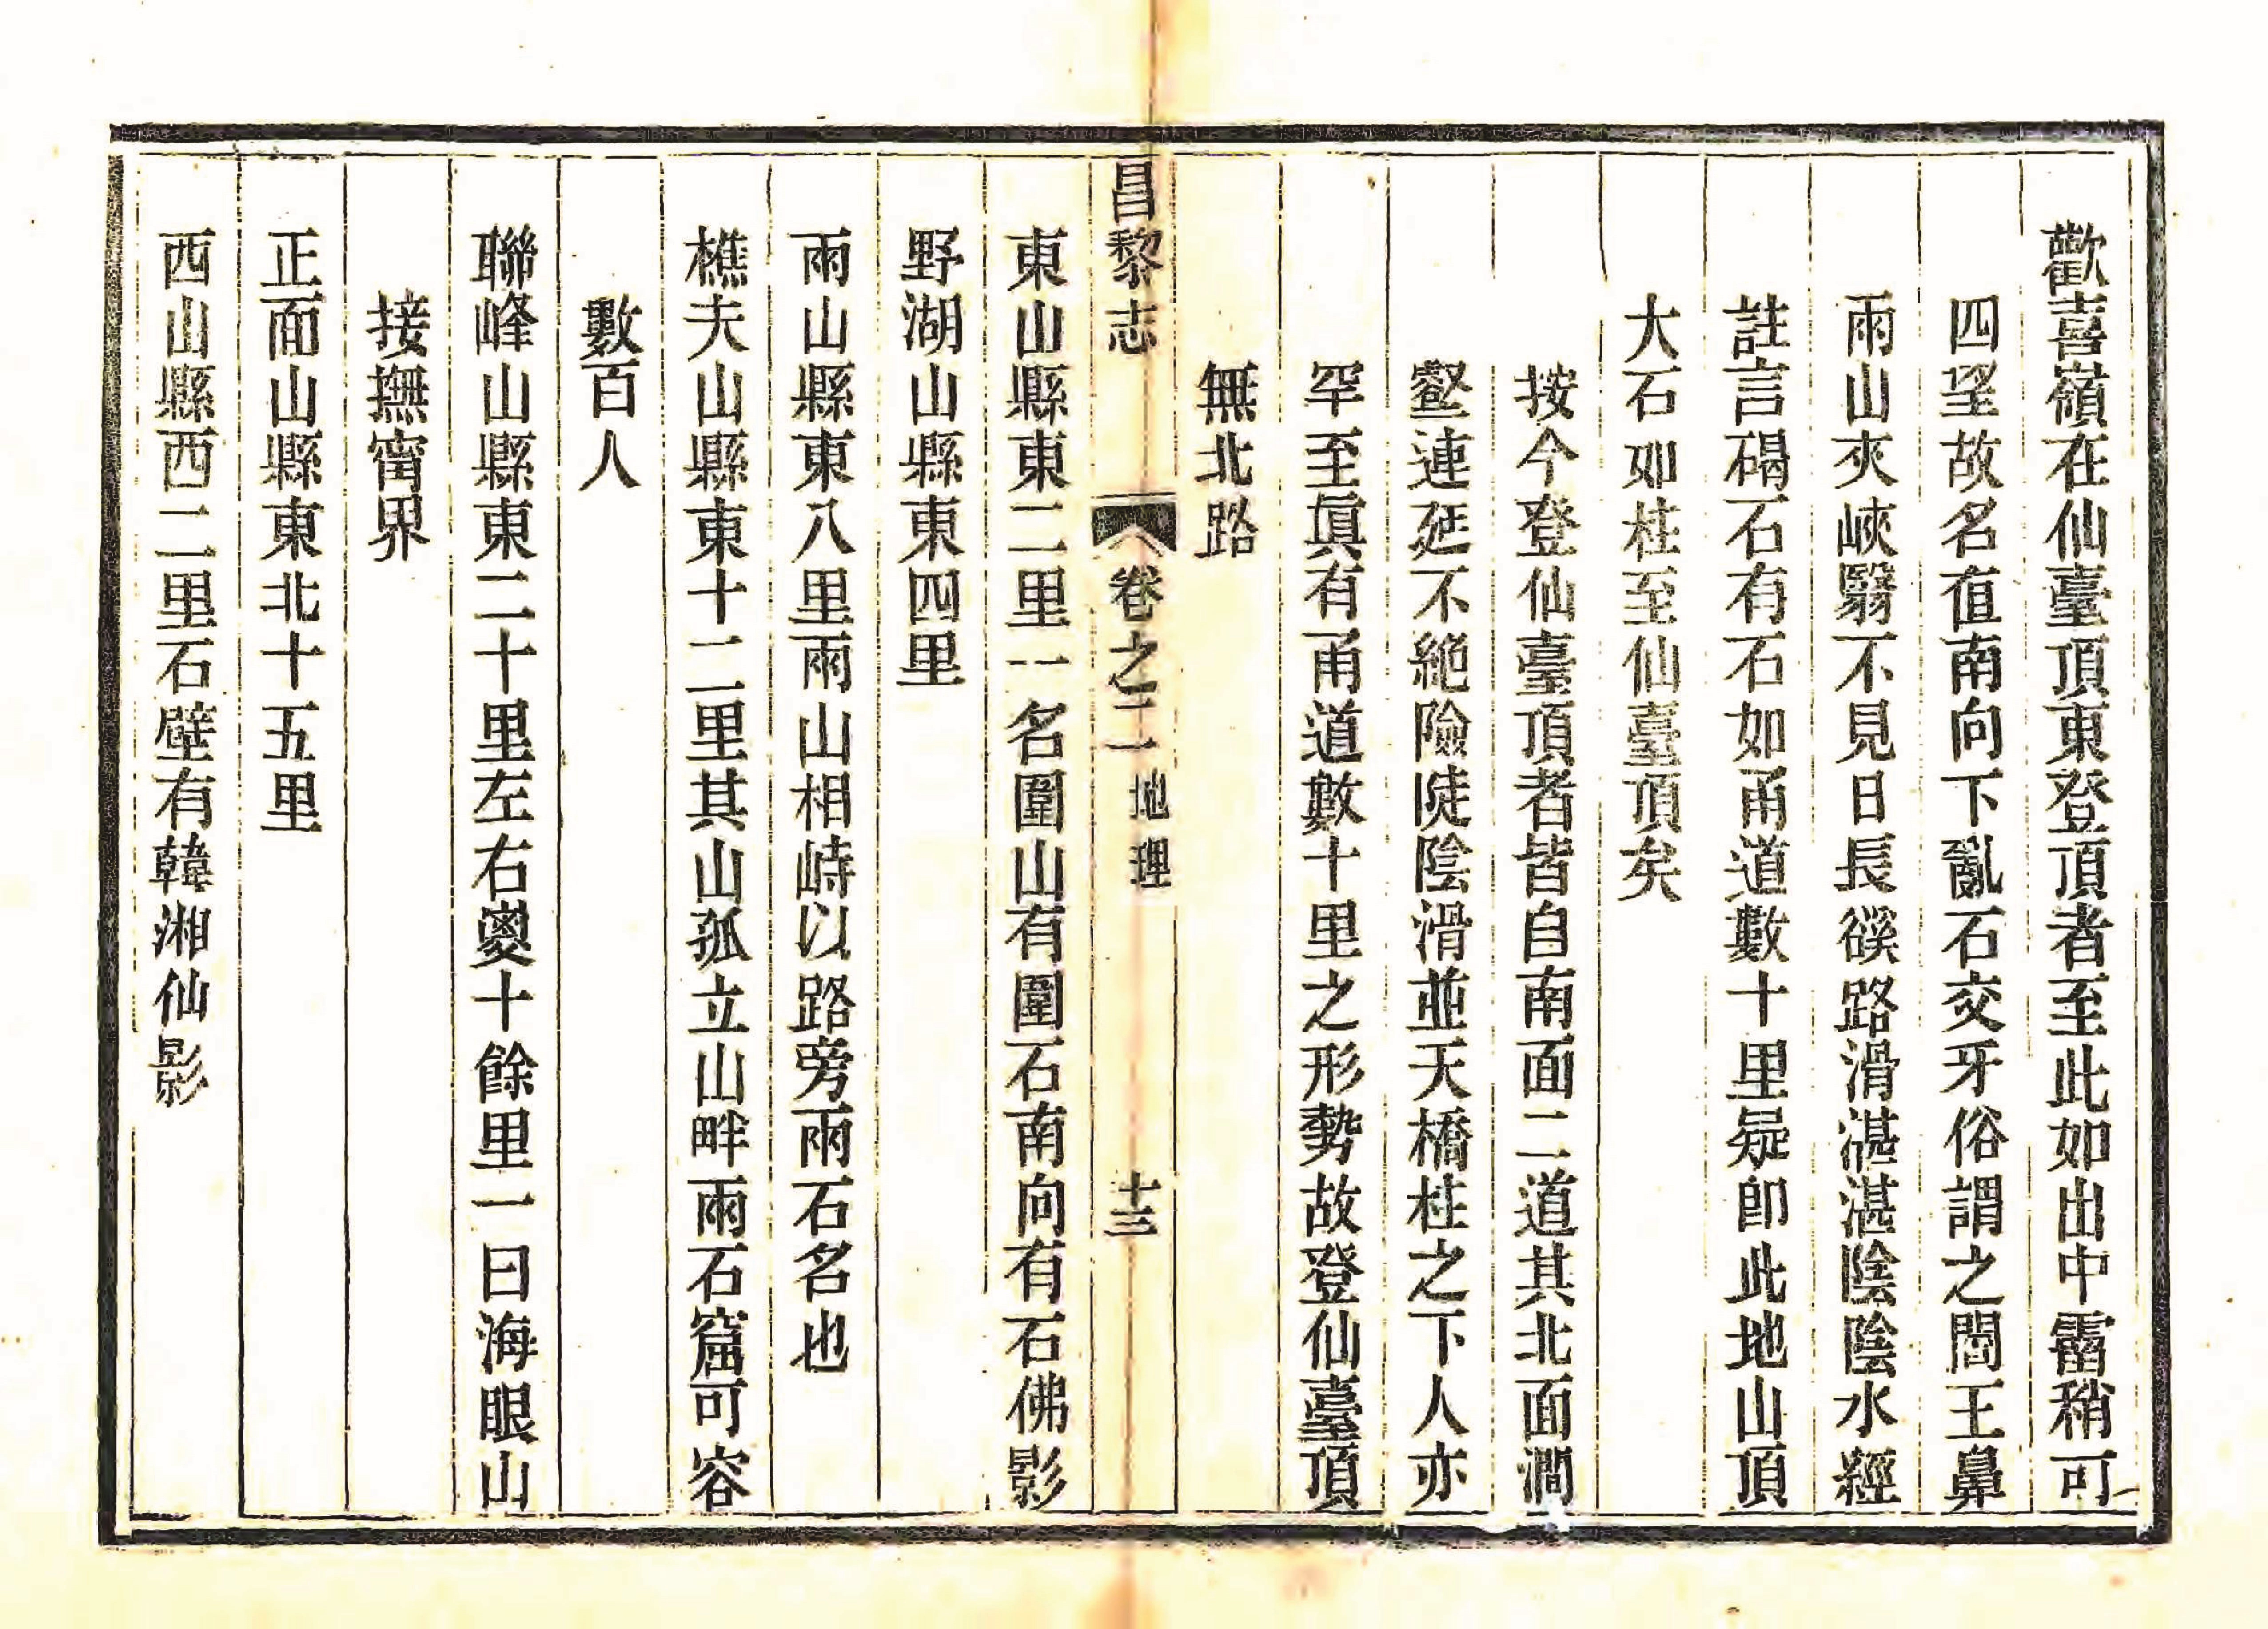 歡喜嶺在仙臺頂東登頂者至此如出中霤稍可
四望故名值南向下亂石交牙俗謂之閻王鼻
兩山夾峽翳不見日長谿路滑湛湛陰陰水經
註言碣石有石如甬道數十里疑即此地山頂
大石如柱至仙臺頂矣
按今登仙臺頂者皆自南面二道其北面澗
壑連延不絕險陡陰滑並天橋柱之下人亦
罕至眞有甬道數十里之形勢故登仙臺頂
無北路
昌黎志 卷之二 地理 十三
東山縣東二里一名圍山有圍石南向有石佛影
野湖山縣東四里
兩山縣東八里兩山相峙以路旁兩石名也
樵夫山縣東十二里其山孤立山畔兩石窟可容
數百人
聯峰山縣東二十里左右奧十餘里一曰海眼山
接撫甯界
正面山縣東北十五里
西山縣西二里石壁有韓湘仙影